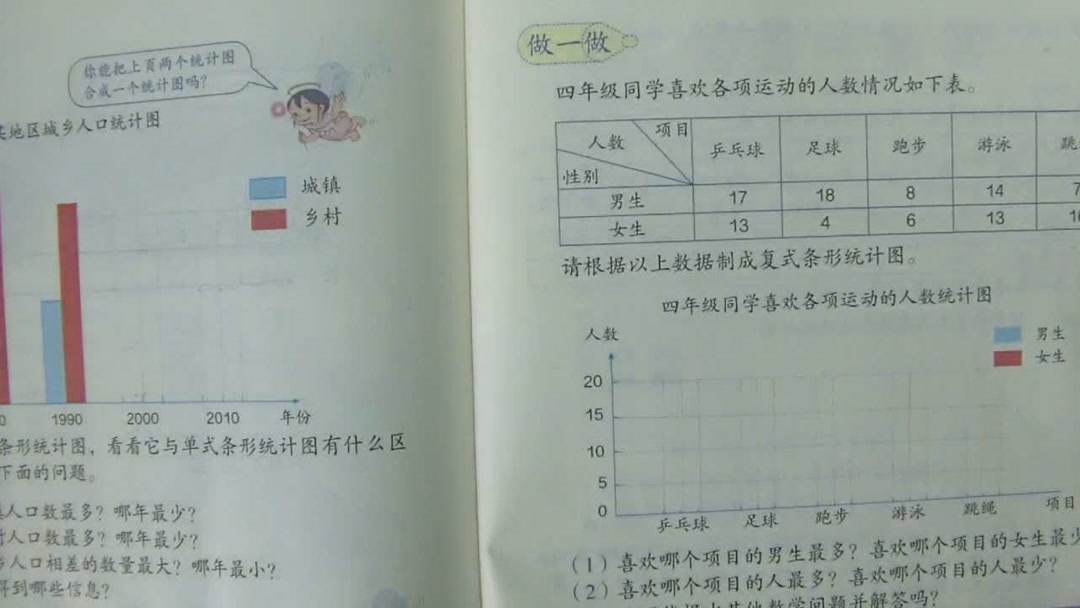 你能把上页两个统计图
合成一个统计图吗?
地区城乡人口统计图
城镇
乡村
1990 2000 2010 年份
条形统计图，看看它与单式条形统计图有什么区
下面的问题。
人口数最多? 哪年最少?
人口数最多? 哪年最少?
人口相差的数量最大? 哪年最小?
得到哪些信息?
做一做
四年级同学喜欢各项运动的人数情况如下表。
人数 项目 性别 乒乓球 足球 跑步 游泳 跳
男生 17 18 8 14 7
女生 13 4 6 13
请根据以上数据制成复式条形统计图。
四年级同学喜欢各项运动的人数统计图
人数
男生
女生
20
15
10
5
0
乒乓球 足球 跑步 游泳 跳绳 项目
(1) 喜欢哪个项目的男生最多? 喜欢哪个项目的女生最少
(2) 喜欢哪个项目的人最多? 喜欢哪个项目的人最少?
其他数学问题并解答吗?